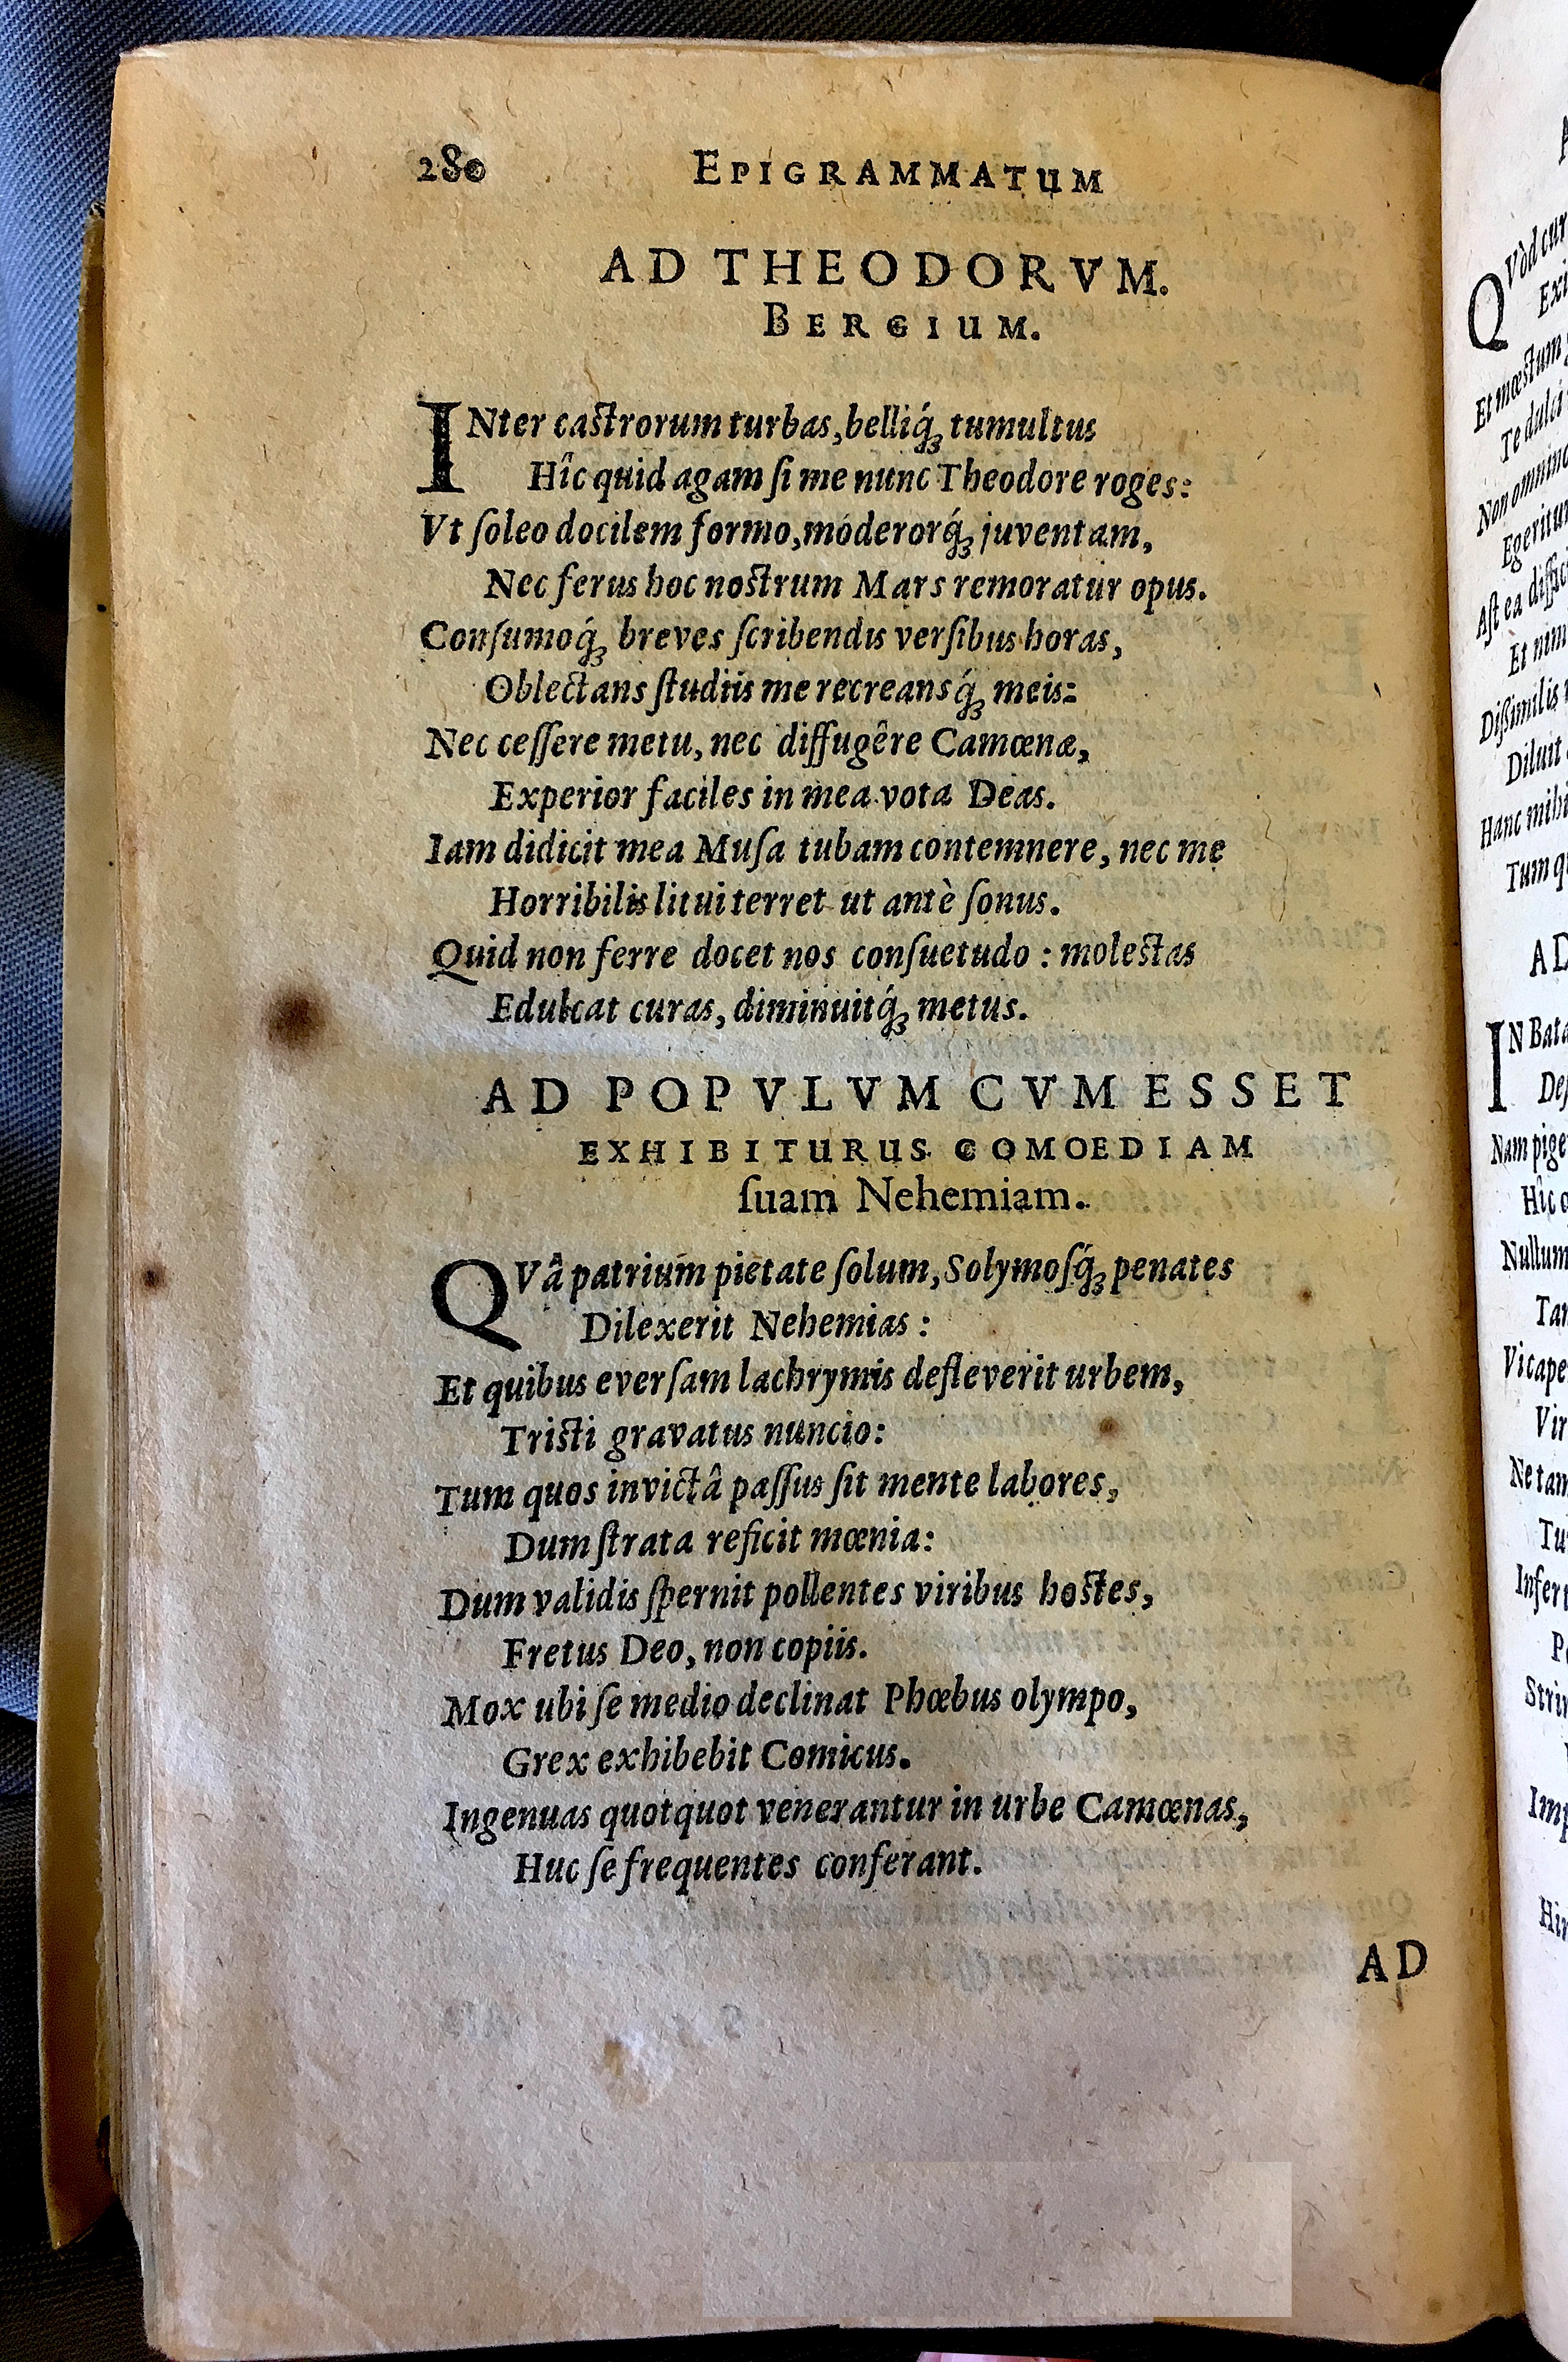 280 EPIGRAMMATUM
AD THEODORVM.
BERGIUM.
INter castrorum turbas, belliq́ꝫ tumultus
Hîc quid agam ſi me nunc Theodore roges:
Vt ſoleo docilem formo, moderorq́ꝫ juventam,
Nec ferus hoc nostrum Mars remoratur opus.
Conſumoq́ꝫ breves ſcribendis verſibus horas,
Oblectans ſtudiis me recreansq́ꝫ meis:
Nec ceſſere metu, nec diffugêre Camœnæ,
Experior faciles in mea vota Deas.
Iam didicit mea Muſa tubam contemnere, nec me
Horribilis litui terret ut antè ſonus.
Quid non ferre docet nos conſuetudo : molestas
Edulcat curas, diminuitq́ꝫ metus.
AD POPVLVM CVM ESSET
EXHIBITURUS COMOEDIAM
ſuam Nehemiam.
QVâ patrium pietate ſolum, Solymoſq́ꝫ penates
Dilexerit Nehemias :
Et quibus everſam lachrymis defleverit urbem,
Tristi gravatus nuncio:
Tum quos invictâ paſſus ſit mente labores,
Dum ſtrata reficit mœnia:
Dum validis ſpernit pollentes viribus hostes,
Fretus Deo, non copiis.
Mox ubi ſe medio declinat Phœbus olympo,
Grex exhibebit Comicus.
Ingenuas quotquot venerantur in urbe Camœnas,
Huc ſe frequentes conferant.
AD
QVòd
Et mœstum
Te dulci
Non
Aſt ea
Et
Dißimilis
Diluit
Hanc mihi
Tum
AD
IN
Nam
Hîc
Nullum